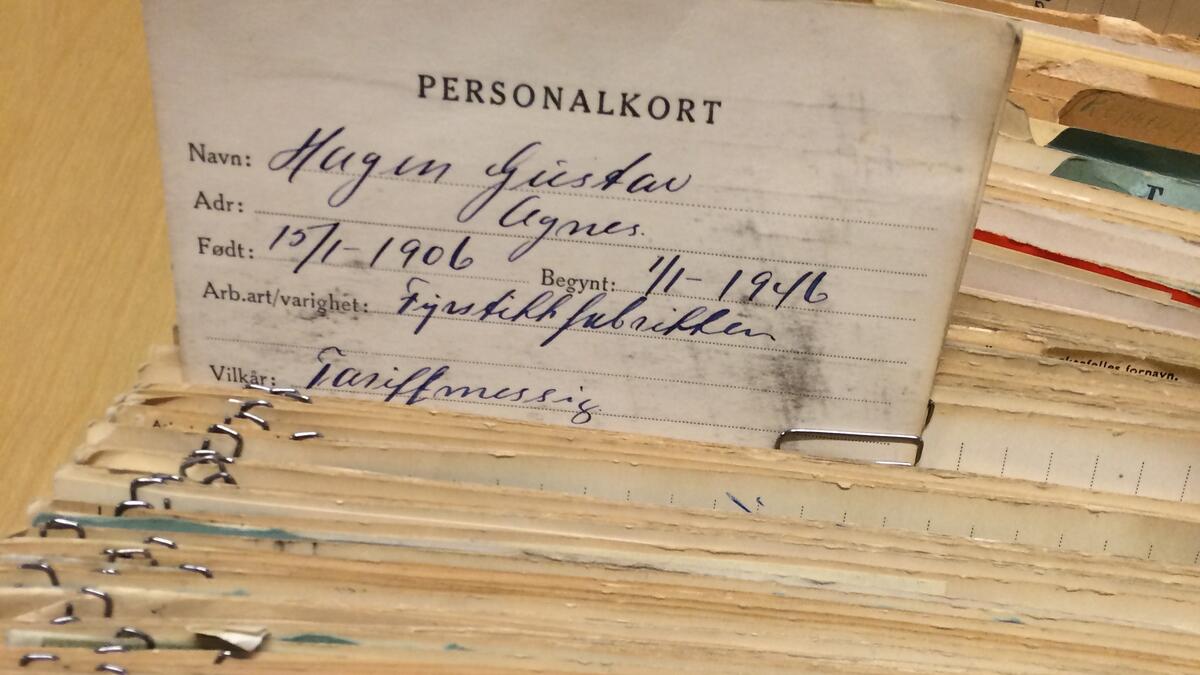 PERSONALKORT
Navn: Hagen Gustav
Adr: Agnes.
Født: 15/1-1906 Begynt: 1/1-1946
Arb.art/varighet: Fyrstikkfabrikken
Vilkår: Tariffmessig
fornavn.
T